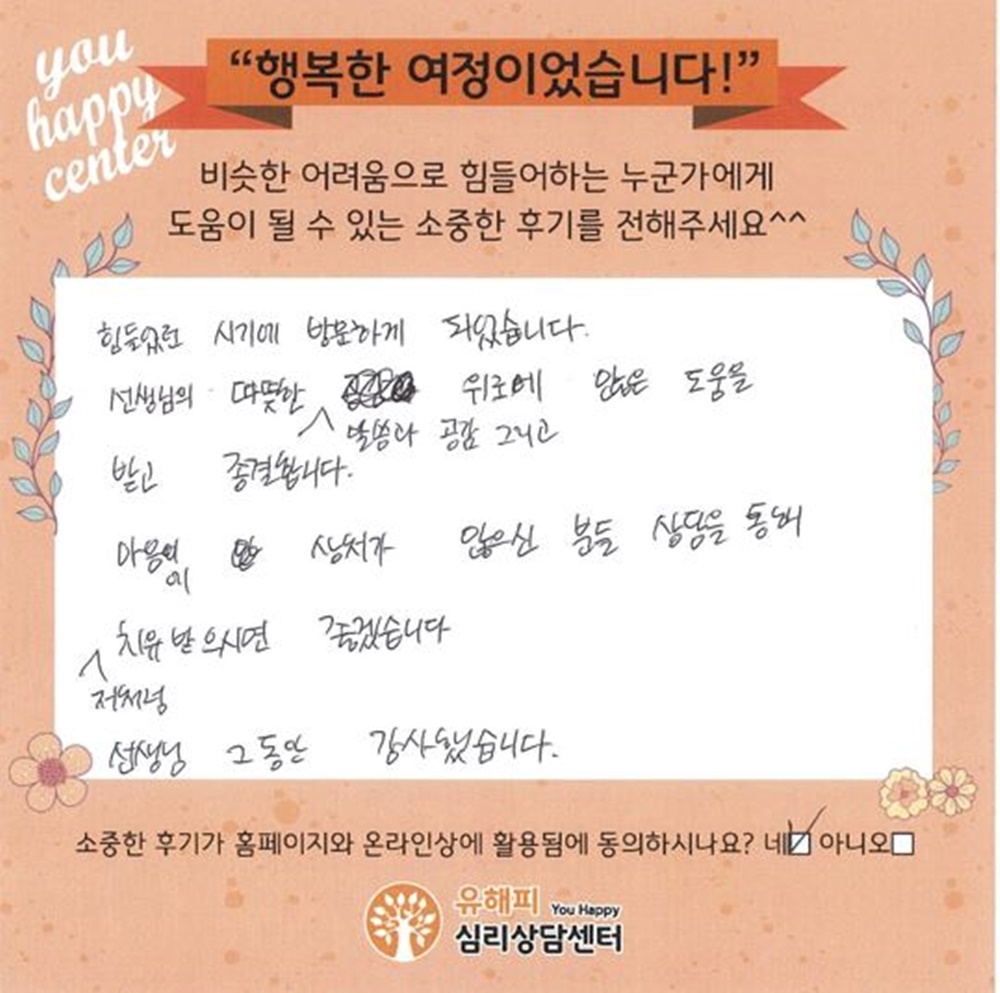 you
happy
center
“행복한 여정이었습니다!”
비슷한 어려움으로 힘들어하는 누군가에게
도움이 될 수 있는 소중한 후기를 전해주세요^^
힘들었던 시기에 방문하게 되었습니다.
선생님의 따뜻한 위로에 많은 도움을
말씀과 공감 그리고
받고 종결합니다.
마음의 상처가 많으신 분들 상담을 통해
이
치유 받으시면 좋겠습니다
저처럼
선생님 그동안 감사했습니다.
소중한 후기가 홈페이지와 온라인상에 활용됨에 동의하시나요? 네 아니오
유해피 You Happy
심리상담센터